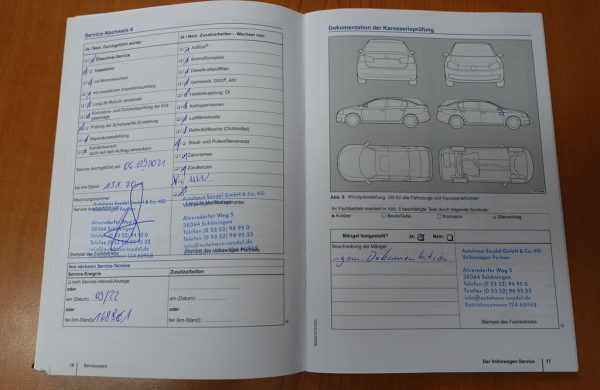 Service-Nachweis 6
Ja / Nein. Durchgeführt wurde:
Ölwechsel-Service
Inspektion
mit Motorölwechsel
mit erweitertem Inspektionsumfang
LongLife Motoröl verwendet
Prüfung der Scheinwerfer-Einstellung
Reparaturempfehlung
Kundenwunsch
(auch auf dem Auftrag vermerken)
Service durchgeführt am: 06.09.2021
bei km-Stand:
Rechnungsnummer:
Autohaus Seydel GmbH & Co. KG
Alversdorfer Weg 5
38364 Schöningen
Telefon (0 53 52) 94 95 0
Telefax (0 53 52) 94 95 33
info@autohaus-seydel.de
124 60968
Stempel des Fachbetriebs
Ja / Nein. Zusatzarbeiten – Wechsel von:
AdBlue®
Bremsflüssigkeit
Dieselkraftstofffilter
Getriebeöl: DSG®, AZF
Haldexkupplung: Öl
Keilrippenriemen
Luftfiltereinsatz
Reifenfülltasche (Dichtmittel)
Staub- und Pollenfiltereinsatz
Zahnriemen
Zündkerzen
Autohaus Seydel GmbH & Co. KG
Alversdorfer Weg 5
38364 Schöningen
Telefon (0 53 52) 94 95 0
Telefax (0 53 52) 94 95 33
info@autohaus-seydel.de
Stempel des Volkswagen Partners
Ihre nächsten Service-Termine
Service-Ereignis
Zusatzarbeiten
nach Service-Intervall-Anzeige
oder
am (Datum): 09/22
am (Datum):
oder
oder
bei (km-Stand):
bei (km-Stand):
16 Serviceplan
Dokumentation der Karosserieprüfung
Abb. 8 Prinzipdarstellung: Gilt für alle Fahrzeuge und Karosserieformen.
Ihr Fachbetrieb markiert in Abb. 8 beschädigte Teile durch folgende Symbole:
Kratzer
Beule/Delle
Korrosion
Steinschlag
Mängel festgestellt?
Ja:
Nein:
Beschreibung der Mängel
Dokumentation
Autohaus Seydel GmbH & Co. KG
Volkswagen Partner
Alversdorfer Weg 5
38364 Schöningen
Telefon (0 53 52) 94 95 0
Telefax (0 53 52) 94 95 33
info@autohaus-seydel.de
Betriebsnummer 124 60968
Stempel des Fachbetriebs
Der Volkswagen Service 17